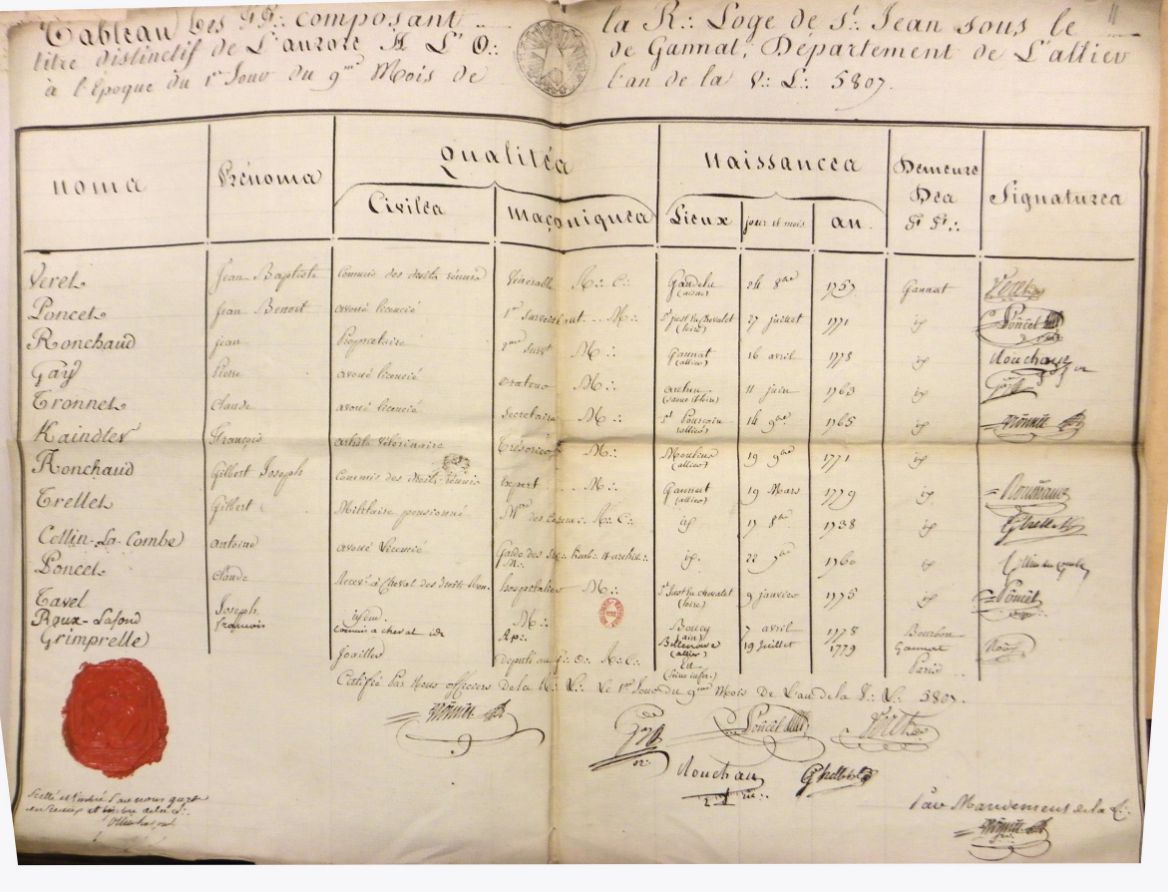 Tableau des FF∴ composant la R∴ Loge de St∴ Jean sous le 11
titre distinctif de L'aurore A L'O∴ de Gannat, Département de L'allier
à l'Epoque du 1er Jour du 9me Mois de l'an de la V∴ L∴ 5807.
noms Prénoms Qualités naissances Demeure Des FF∴ Signatures
Civiles maçoniques Lieux jour et mois an
Veret Jean Baptiste Commis des droits réunis Vénérable R∴ C∴ (aisne) 24 8bre 1757 Gannat Veret
Poncet Jean Benoit avoué licencié 1er Surveillant M∴ St just la chevalet (loire) 27 juillet 1771 id Poncet
Ronchaud Jean Propriétaire 2me Survt M∴ Gannat (allier) 16 avril 1778 id Rouchaud
Gay Pierre avoué licencié orateur M∴ (saone et loire) 11 juin 1763 id Gay
Tronnet Claude avoué licencié Secretaire M∴ St Pourcain (allier) 14 9bre 1765 id
Kaindler François artiste vétérinaire Trésorier M∴ Moulins (allier) 19 9bre 1771 id
Ronchaud Gilbert Joseph Commis des droits réunis Expert M∴ Gannat (allier) 19 Mars 1779 id
Trellet Gilbert Militaire pensionné Mtre des R∴ C∴ id 17 8bre 1738 id
Cellin-La-Combe antoine avoué licencié Garde des M∴ id 22 1760 id
Poncet Claude à Cheval des droits hospitalier M∴ St Just la chevalet (loire) 9 janvier 1775 id Poncet
Tavel Joseph idem M∴ (ain) 7 avril 1778 Bourbon
Roux-Lafond françois commis a cheval ide Ap∴ Bellenave (allier) 19 juillet 1779 Gannat Roux
Grimprelle Joaillier député au G∴ O∴ R∴ C∴ Eu (Seine infre) Paris
Certifié Par Nous officiers de la R∴ L∴ Le 1er Jour du 9me Mois de L'an de la V∴ L∴ 5807.
Poncet Veret
Rouchaud
Scellé et timbré Par nous garde
Par Mandement de la L∴